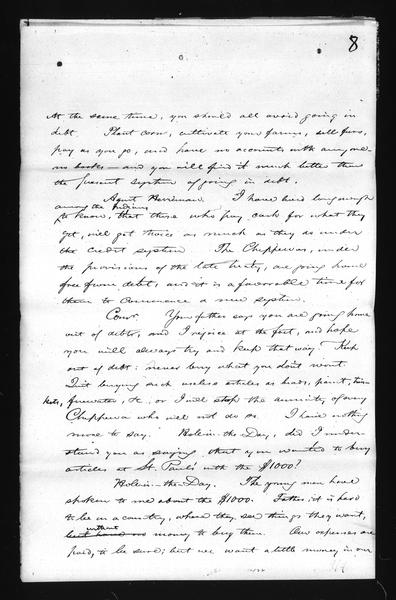 8
At the same time, you should all avoid going in
debt. Plant corn, cultivate your farms, sell furs,
pay as you go, and have no accounts with any one
no books — and you will find it much better than
the present system of going in debt.
Agent Herriman. I have lived long enough
among the Indians
to know, that those who pay cash for what they
get, will get twice as much as they do under
the credit system. The Chippewas, under
the provisions of the late treaty, are going home
free from debt, and it is a favorable time for
them to commence a new system.
Comr. Your father says you are going home
out of debt, and I rejoice at the fact, and hope
you will always try and keep that way. Keep
out of debt: never buy what you don't want.
Quit buying such useless articles as beads, paint, trin-
kets, &c, or I will stop the annuity of every
Chippewa who will not do so. I have nothing
more to say. Hole-in-the-Day, did I under-
stand you as saying, that you wanted to buy
articles at St. Paul with the $1000?
Hole-in-the-Day. The young men have
spoken to me about the $1000. Father, it is hard
to be in a country, where they see things they want,
without
money to buy them. Our expenses are
paid, to be sure; but we want a little money in our